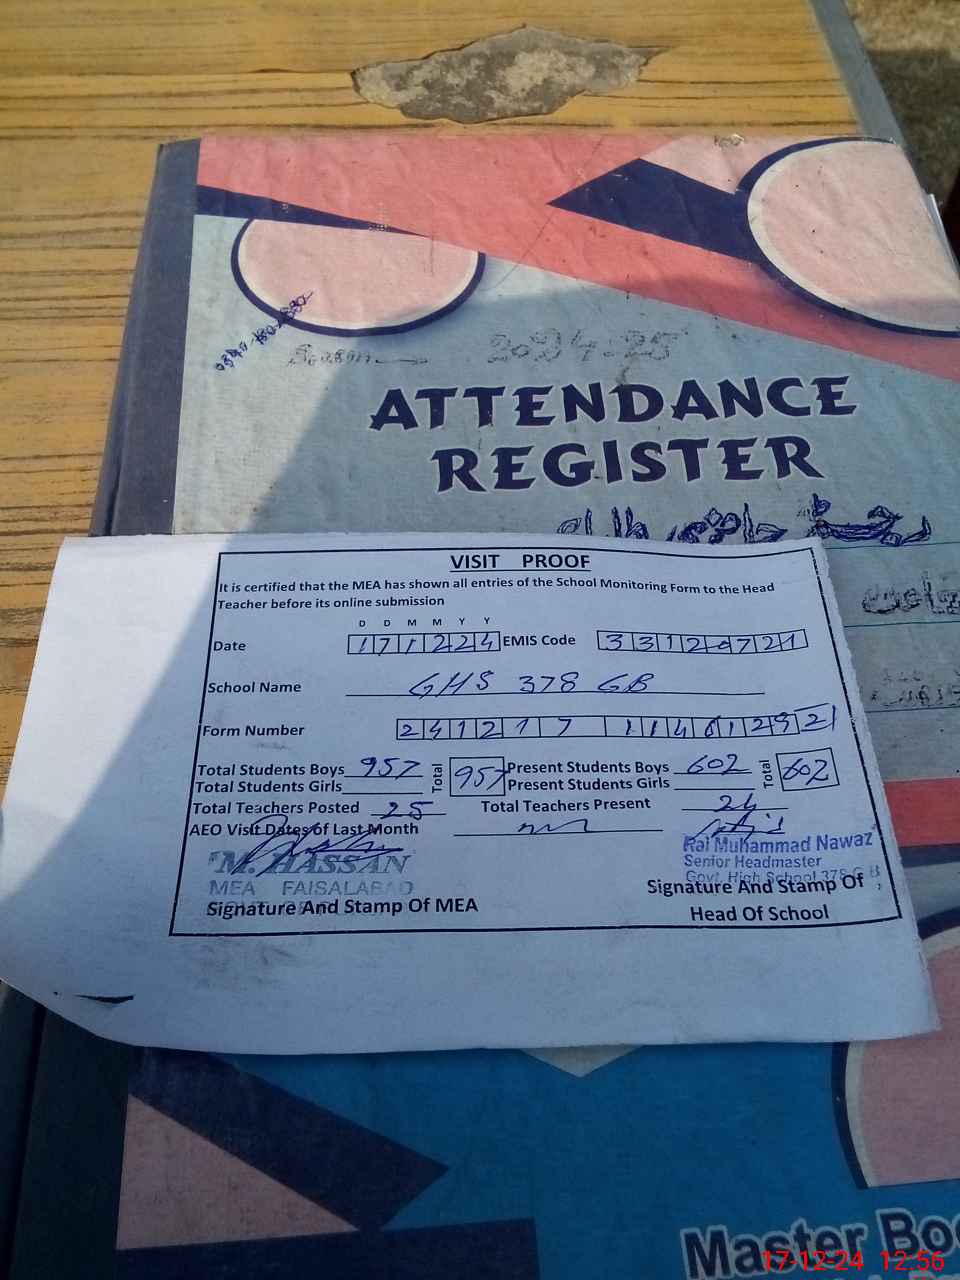 2024-25
ATTENDANCE
REGISTER
VISIT PROOF
It is certified that the MEA has shown all entries of the School Monitoring Form to the Head
Teacher before its online submission
D D M M Y Y
Date 171224 EMIS Code 33120721
School Name GHS 378 GB
Form Number
Total Students Boys 957 Total 957 Present Students Boys 602 Total 602
Total Students Girls Present Students Girls
Total Teachers Posted 25 Total Teachers Present 24
AEO Visit Dates of Last Month
M. HASSAN Rai Muhammad Nawaz
MEA FAISALABAD Senior Headmaster
Govt. High School 378 G B
Signature And Stamp Of MEA Signature And Stamp Of
Head Of School
Master
17-12-24 12:56